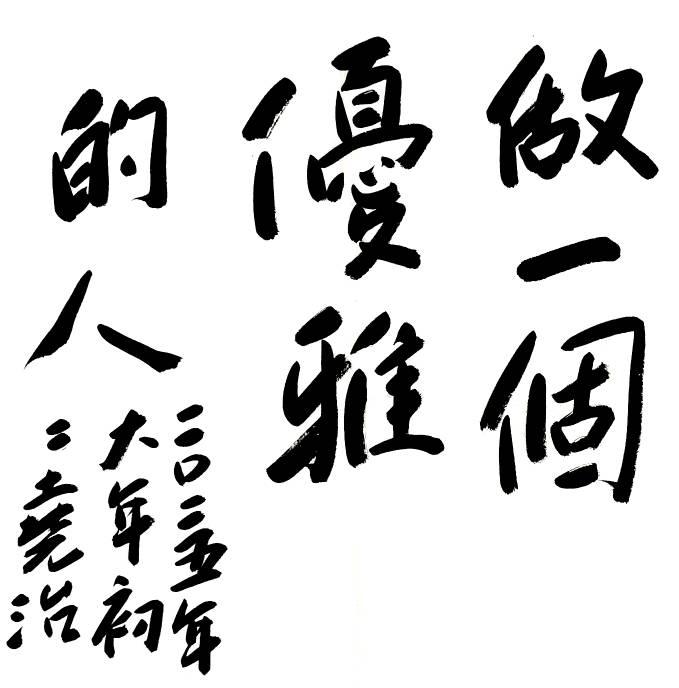 做一個
優雅
的人
二〇二五年
大年初
二堯治